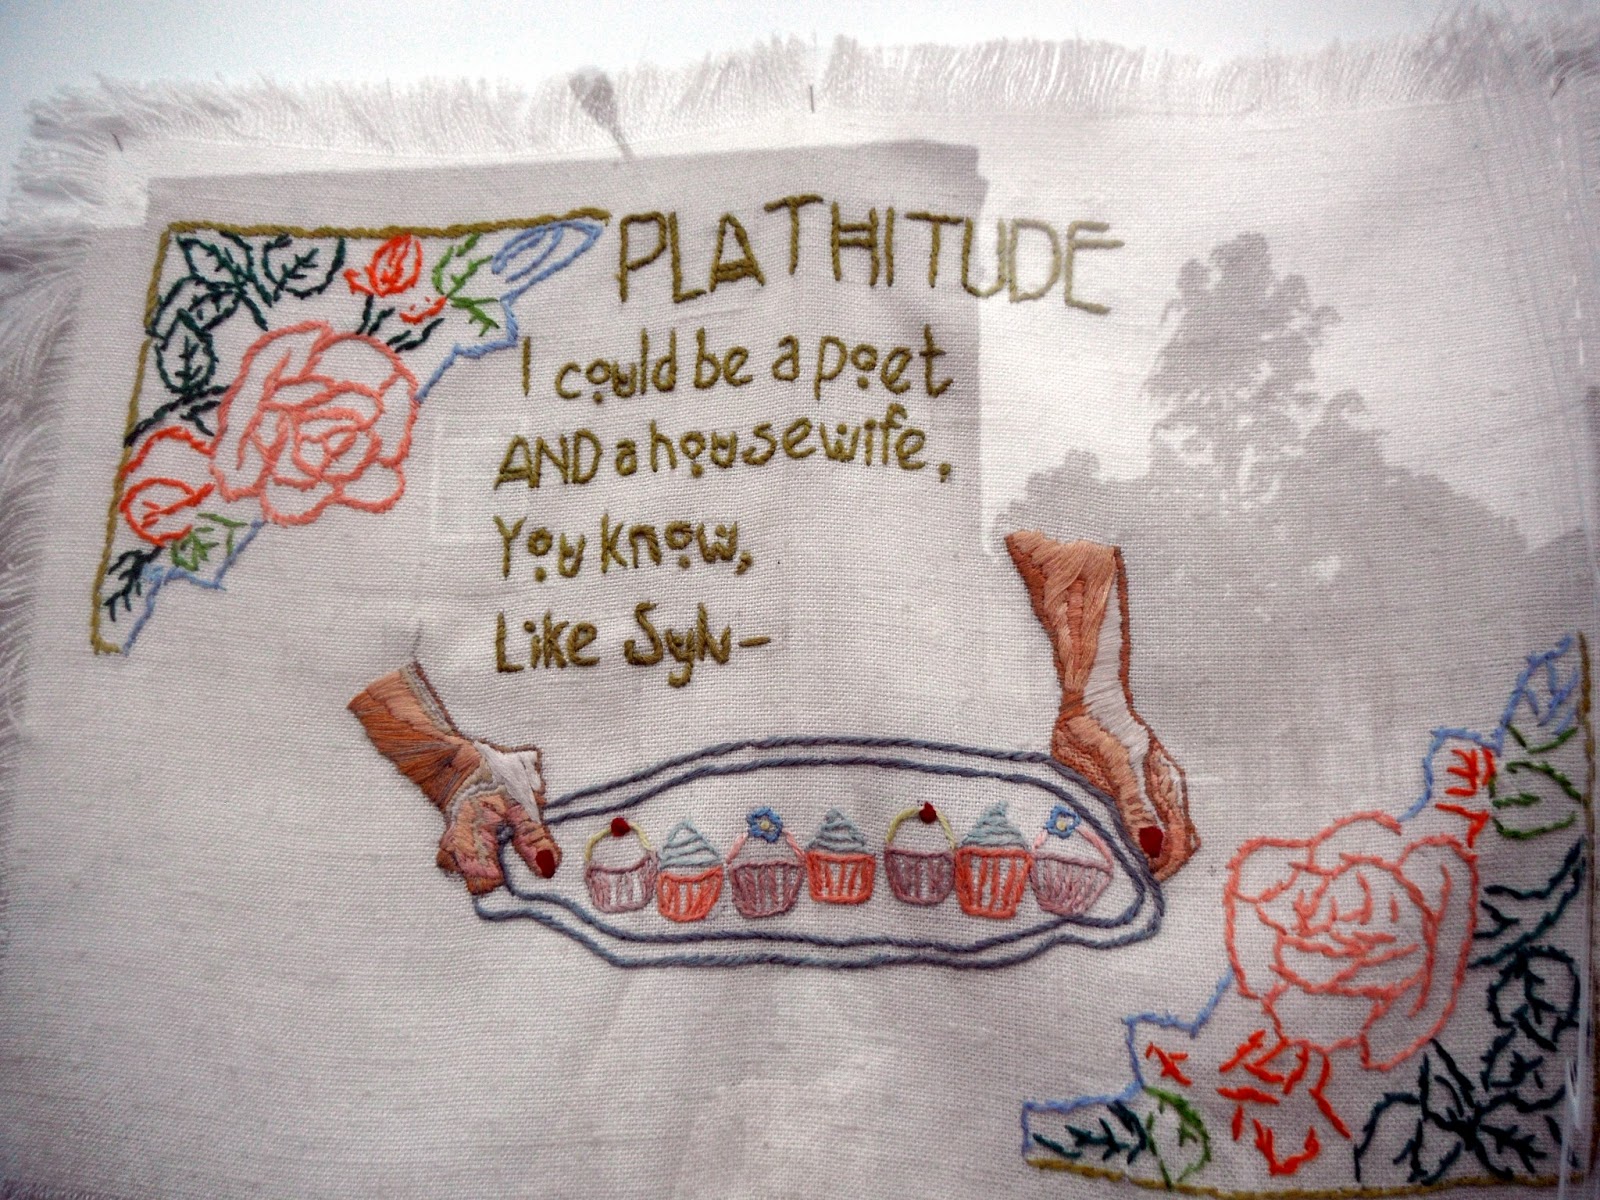 PLATHITUDE
I could be a poet
AND a housewife.
You know,
Like Sylv—